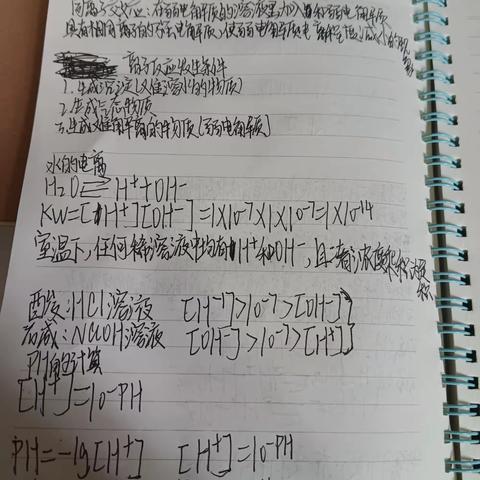 同离子效应:在弱电解质的溶液里加入与弱电解质
具有相同离子的强电解质,使弱电解质电离程度减小的现象
离子反应发生条件
1.生成沉淀(难溶的物质)
2.生成气态物质
3.生成难电离的物质[弱电解质]
水的电离
H2O⇌H++OH-
KW=[H+][OH-]=1×10-7×1×10-7=1×10-14
室温下,任何稀溶液中均有H+和OH-,且二者浓度
酸:HCl溶液 [H+]>10-7>[OH-]
碱:NaOH溶液 [OH-]>10-7>[H+]
PH的计算
[H+]=10-PH
PH=-lg[H+] [H+]=10-PH